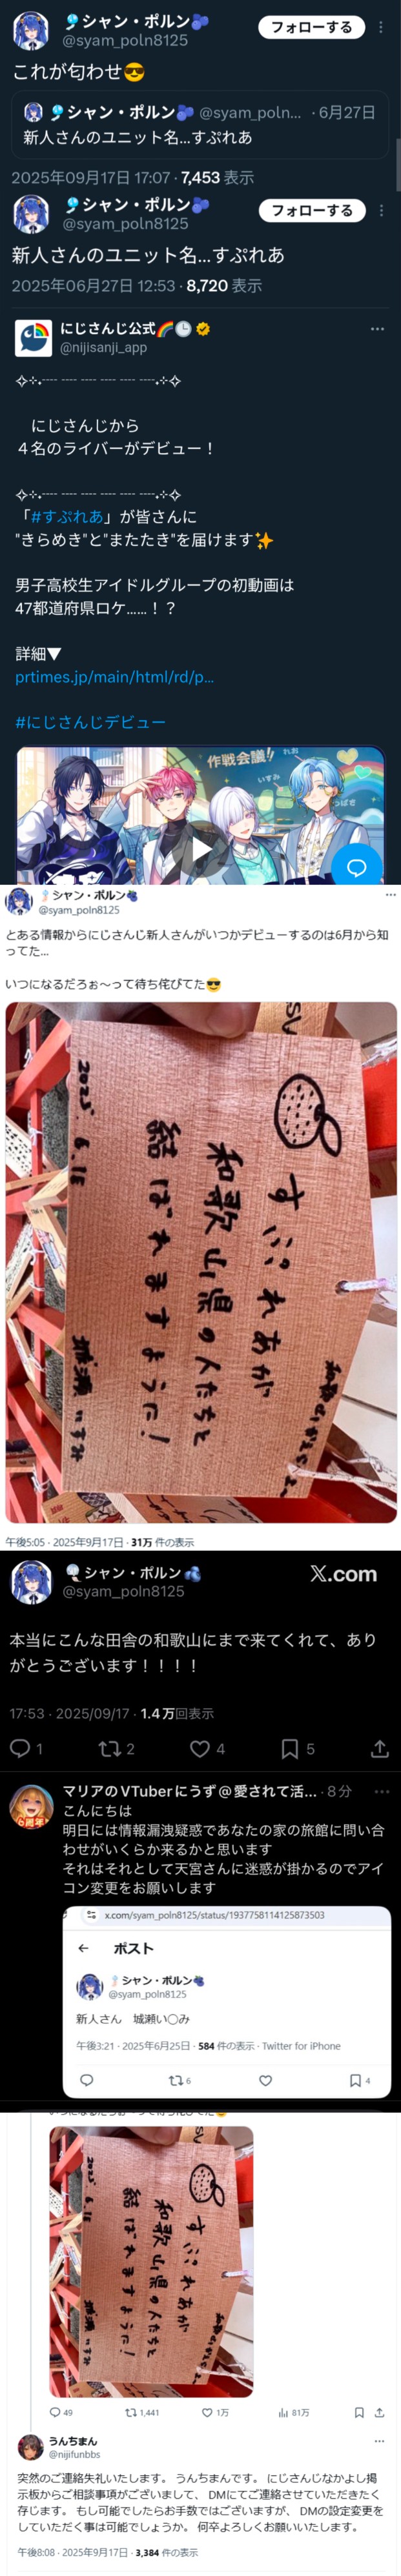 シャン・ポルン
@syam_poln8125
フォローする
これが匂わせ😎
シャン・ポルン🫐 @syam_poln... · 6月27日
新人さんのユニット名...すぷれあ
2025年09月17日 17:07 · 7,453 表示
シャン・ポルン🫐
@syam_poln8125
フォローする
新人さんのユニット名...すぷれあ
2025年06月27日 12:53 · 8,720 表示
にじさんじ公式🌈🕒
@nijisanji_app
にじさんじから
４名のライバーがデビュー！
「#すぷれあ」が皆さんに
"きらめき"と"またたき"を届けます✨
男子高校生アイドルグループの初動画は
47都道府県ロケ......！？
詳細▼
prtimes.jp/main/html/rd/p...
#にじさんじデビュー
作戦会議!
れお
いすみ
つばさ
シャン・ポルン
@syam_poln8125
とある情報からにじさんじ新人さんがいつかデビューするのは6月から知
ってた...
いつになるだろぉ〜って待ち侘びてた😎
すぷれあが
和歌山県の人たちと
結ばれますように!
2025. 6.18
城瀬いすみ
午後5:05 · 2025年9月17日 · 31万 件の表示
シャン・ポルン
@syam_poln8125
X.com
本当にこんな田舎の和歌山にまで来てくれて、あり
がとうございます！！！！
17:53 · 2025/09/17 · 1.4万回表示
1 2 4 5
マリアのVTuberにうず@愛されて活... · 8分
6周年
こんにちは
明日には情報漏洩疑惑であなたの家の旅館に問い合
わせがいくらか来るかと思います
それはそれとして天宮さんに迷惑が掛かるのでアイ
コン変更をお願いします
x.com/syam_poln8125/status/1937758114125873503
ポスト
シャン・ポルン
@syam_poln8125
新人さん 城瀬い〇み
午後3:21 · 2025年6月25日 · 584 件の表示 · Twitter for iPhone
6 4
すぷれあが
和歌山県の人たちと
結ばれますように!
2025. 6.18
城瀬いすみ
49 1,441 1万 81万
うんちまん
@nijifunbbs
突然のご連絡失礼いたします。 うんちまんです。 にじさんじなかよし掲
示板からご相談事項がございまして、 DMにてご連絡させていただきたく
存じます。 もし可能でしたらお手数ではございますが、 DMの設定変更を
していただく事は可能でしょうか。 何卒よろしくお願いいたします。
午後8:08 · 2025年9月17日 · 3,384 件の表示